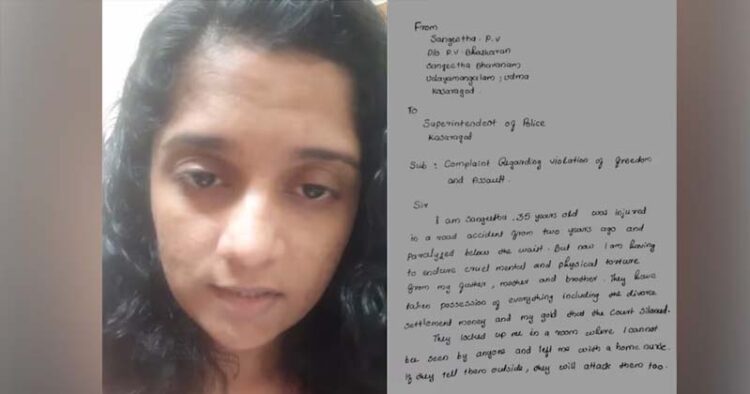 From
Sangeetha. P.V
D/o P.V. Bhaskaran
Sangeetha Bhavanam,
Udayamangalam, udma
Kasaragod.
To
Superintendent of Police
Kasaragod
Sub : Complaint Regarding violation of freedom
and Assault.
Sir
I am Sangeetha. 35 years old was injured
in a road accident from two years ago and
Paralyzed below the waist. But now I am having
to endure cruel mental and physical torture
from my father, mother and brother. They have
taken possession of everything including the divorce
settlement money and my gold that the Court
They locked up me in a room where I cannot
be seen by anyone and left me with a home nurse.
If they tell them outside, they will attack them too.